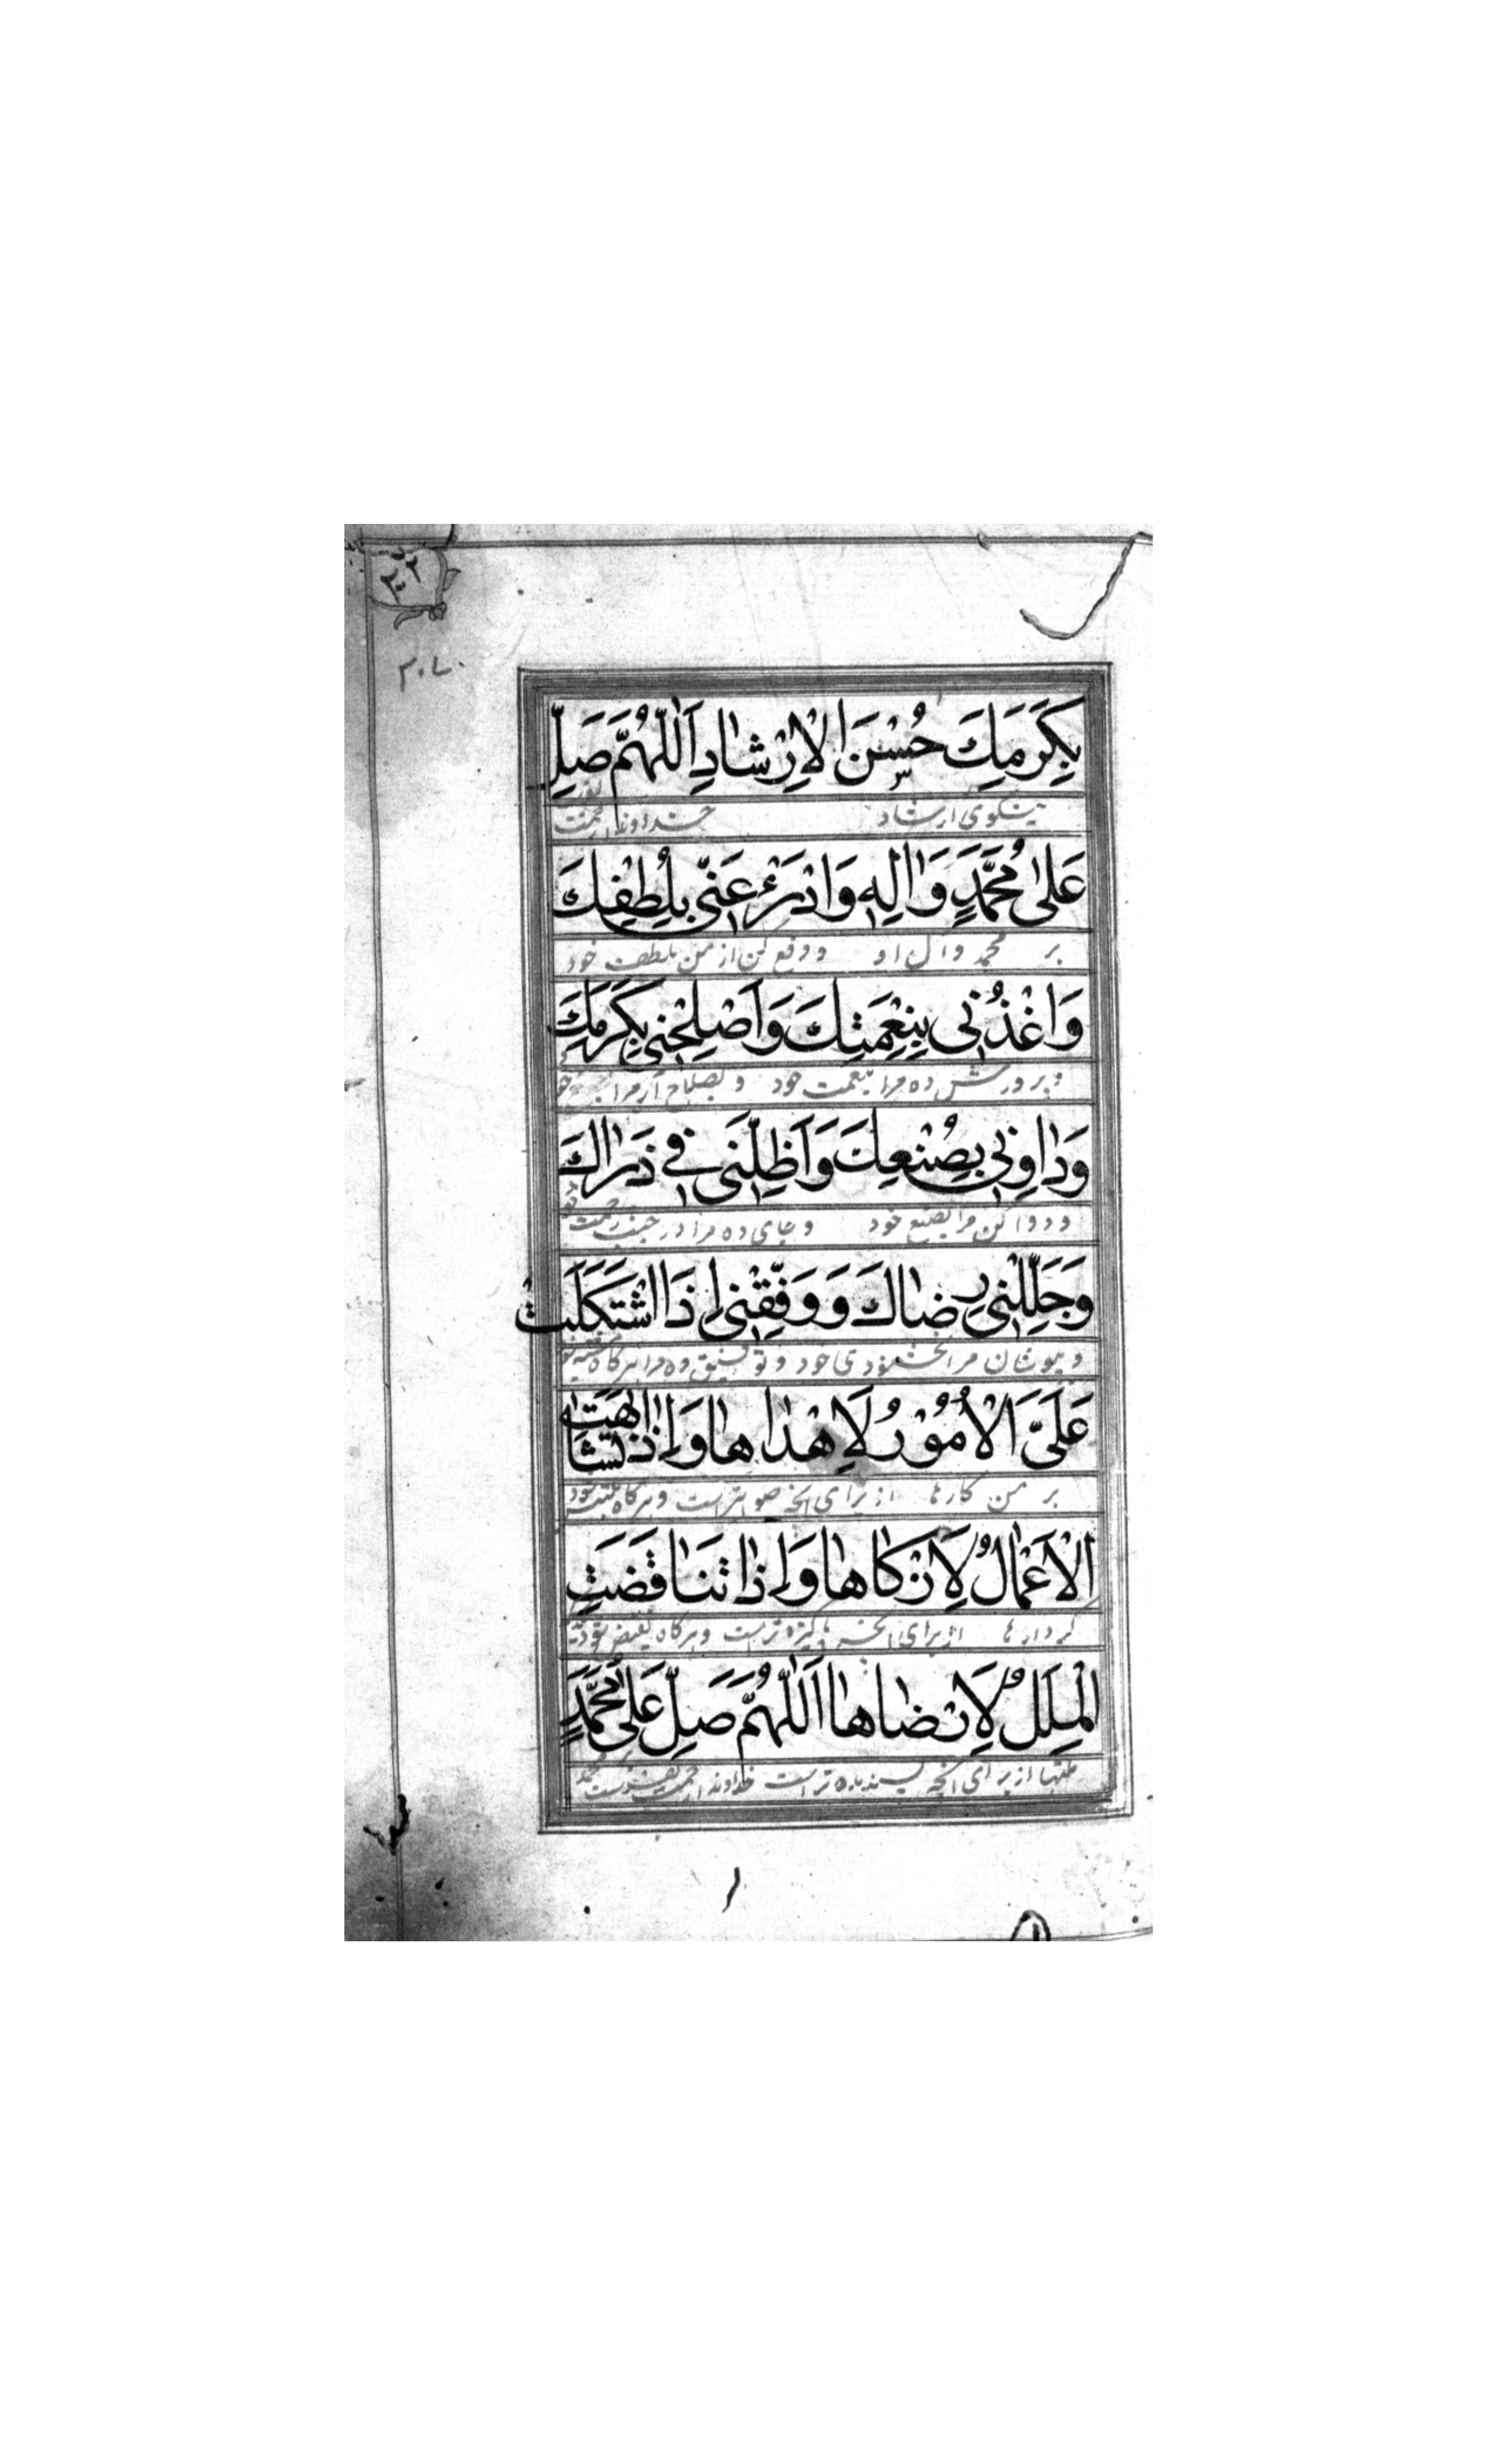 ۲۰۲
۲۰۷
بِكَرَمِكَ حُسْنَ الْاِرْشٰادِ اَللّٰهُمَّ صَلِّ
نیکوی ارشاد خداوندا رحمت
عَلىٰ مُحَمَّدٍ وَاٰلِهِ وَادْرَءْ عَنّى بِلُطْفِكَ
بر محمد و آل او و دفع کن از من بلطف خود
وَاغْذُنى بِنِعْمَتِكَ وَاَصْلِحْنى بِكَرَمِكَ
و پرورش ده مرا بنعمت خود و بصلاح آر مرا
وَدٰاوِنى بِصُنْعِكَ وَاَظِلَّنى فى ذَرٰاكَ
و دوا کن مرا بصنع خود و جای ده مرا در جنب رحمت تو
وَجَلِّلْنى رِضٰاكَ وَوَفِّقْنى اِذَا اشْتَكَلَتْ
و بپوشان مرا بخشنودی خود و توفیق ده مرا هرگاه
عَلَىَّ الْاُمُوْرُ لِاَهْدٰاهٰا وَاِذٰا تَشٰابَهَتِ
بر من کارها از برای آنچه صوابتر است و هرگاه
الْاَعْمٰالُ لِاَزْكٰاهٰا وَاِذٰا تَنٰاقَضَتِ
کردارها از برای آنچه پاکیزه تر است و هرگاه نقیض شود
الْمِلَلُ لِاَرْضٰاهٰا اَللّٰهُمَّ صَلِّ عَلىٰ مُحَمَّدٍ
ملتها از برای آنچه پسندیده تر است خداوندا رحمت